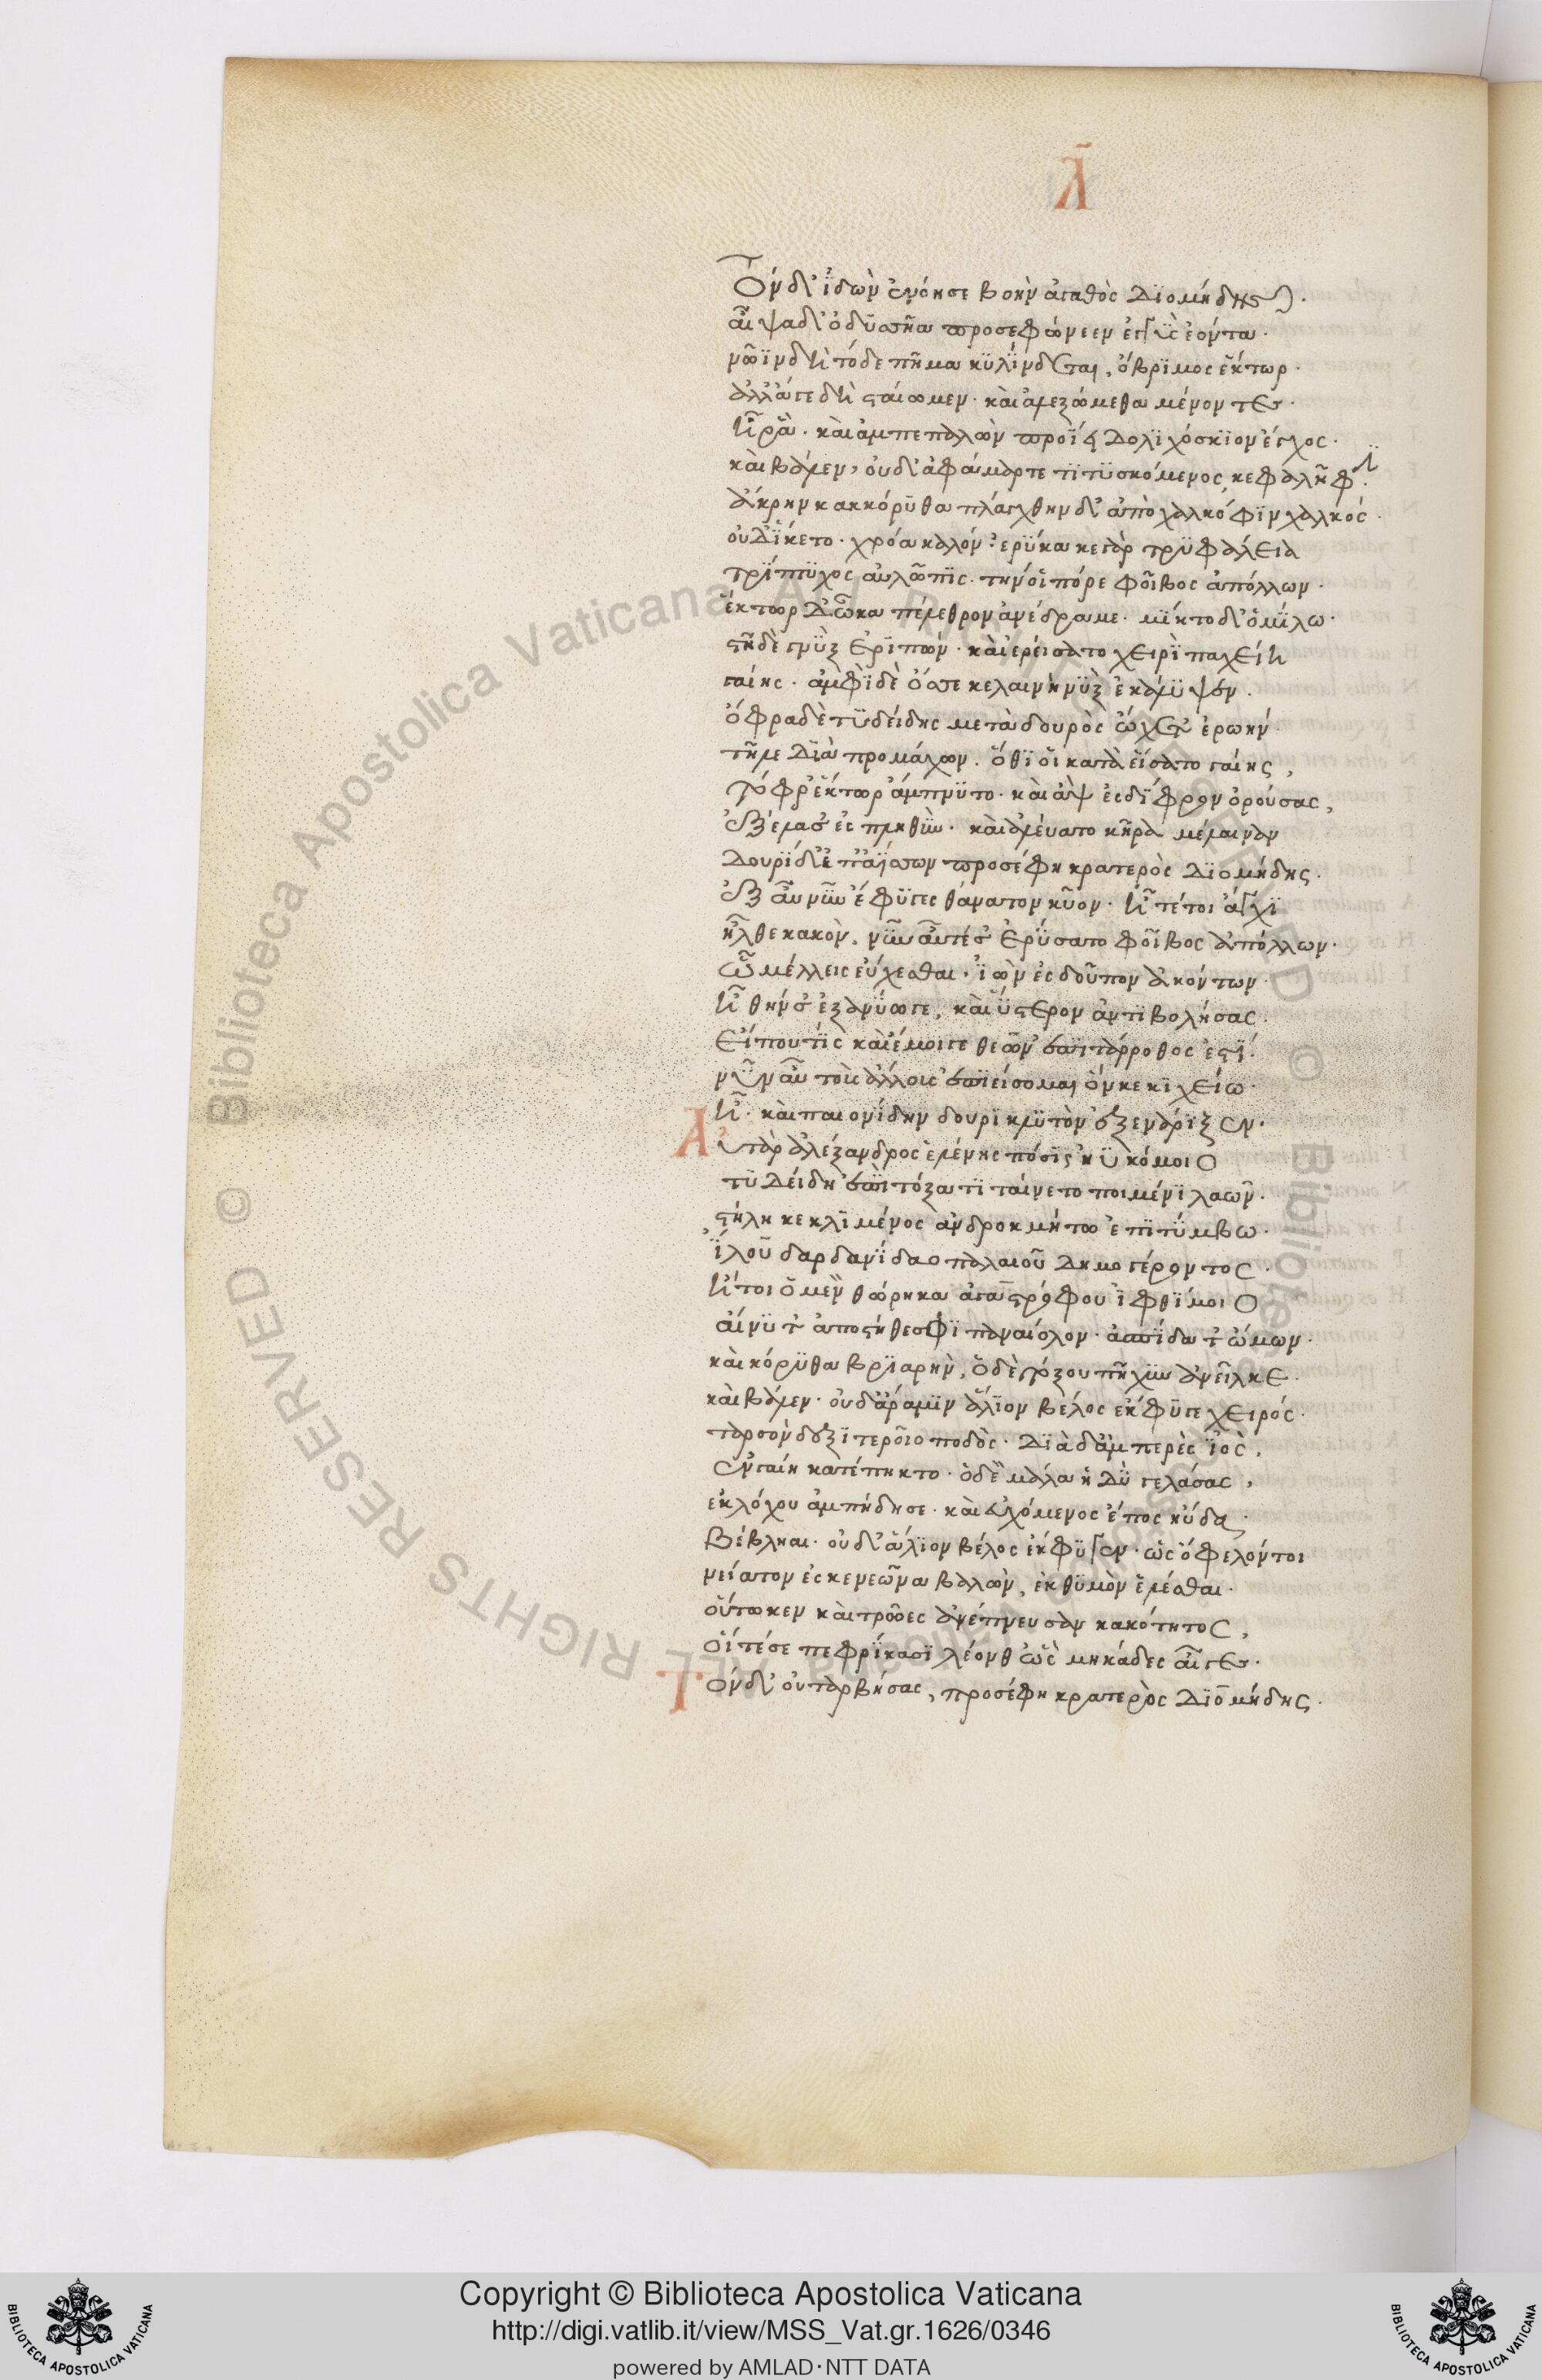 λ̄
Τὸν δ' ἰδὼν ἐνόησε βοὴν ἀγαθὸς Διομήδης.
αἶψα δ' ὀδυσσῆα προσεφώνεεν ἐγγὺς ἐόντα.
νῶϊν δὴ τόδε πῆμα κυλίνδεται, ὄβριμος ἕκτωρ.
ἀλλ' ἄγε δὴ στέωμεν. καὶ ἀλεξώμεθα μένοντες.
ἦ ῥα. καὶ ἀμπεπαλὼν προΐει δολιχόσκιον ἔγχος.
καὶ βάλεν, οὐδ' ἀφάμαρτε τιτυσκόμενος, κεφαλῆφι.
ἄκρην κακκόρυθα πλάγχθην δ' ἀπὸ χαλκόφιν χαλκός.
οὐδ' ἵκετο. χρόα καλόν. ἐρύκακε γὰρ τρυφάλεια
τρίπτυχος αὐλῶπις. τήν οἱ πόρε φοῖβος ἀπόλλων.
ἕκτωρ δ' ὦκα πέλεθρον ἀνέδραμε. μίκτο δ' ὁμίλω.
στῆ δὲ γνὺξ ἐριπών. καὶ ἐρείσατο χειρὶ παχείη
γαίης. ἀμφὶ δὲ ὄσσε κελαινὴ νὺξ ἐκάλυψεν.
ὄφρα δὲ τυδείδης μετὰ δουρὸς ὤχετ' ἐρωὴν
τῆλε διὰ προμάχων. ὅθι οἱ κατὰ εἴσατο γαίης,
τόφρ' ἕκτωρ ἄμπνυτο. καὶ ἂψ ἐς δίφρον ὀρούσας,
ἐξέλασ' ἐς πληθὺν. καὶ ἀλεύατο κῆρα μέλαιναν
δουρὶ δ' ἐπαΐσσων προσέφη κρατερὸς Διομήδης.
ἐξ αὖ νῦν ἔφυγες θάνατον κύον. ἦ τέ τοι ἄγχι
ἦλθε κακὸν. νῦν αὖτέ σ' ἐρύσατο φοῖβος ἀπόλλων.
ὧ μέλλεις εὔχεσθαι. ἰὼν ἐς δοῦπον ἀκόντων.
ἦ θήν σ' ἐξανύωγε, καὶ ὕστερον ἀντιβολήσας.
εἴ που τὶς καὶ ἔμοιγε θεῶν ἐπιτάρροθος ἐστί.
νῦν αὖ τοὺς ἄλλους ἐπιείσομαι ὅν κε κιχείω.
ἦ. καὶ παιονίδην δουρικλυτὸν ἐξενάριξεν.
Αὐτὰρ ἀλέξανδρος ἑλένης πόσις ἠϋκόμοιο
τυδείδη ἔπι τόξα τιταίνετο ποιμένι λαῶν.
στήλη κεκλιμένος ἀνδροκμήτω ἐπὶ τύμβω.
ἴλου δαρδανίδαο παλαιοῦ δημογέροντος.
ἤτοι ὁ μὲν θώρηκα ἀγαστρόφου ἰφθίμοιο
αἴνυτ' ἀπο στήθεσφι παναίολον. ἀσπίδα τ' ὤμων.
καὶ κόρυθα βριαρὴν, ὁ δὲ τόξου πῆχυν ἄνειλκε.
καὶ βάλεν. οὐδ' ἄρα μιν ἅλιον βέλος ἔκφυγε χειρός.
ταρσὸν δεξιτεροῖο ποδὸς. διὰ δ' ἀμπερὲς ἰὸς,
ἐν γαίη κατέπηκτο. ὁ δὲ μάλα ἡδὺ γελάσας,
ἐκ λόχου ἀμπήδησε. καὶ εὐχόμενος ἔπος ηὔδα.
βέβληαι. οὐδ' ἅλιον βέλος ἔκφυγεν. ὡς ὄφελόν τοι
νείατον ἐς κενεῶνα βαλὼν, ἐκ θυμὸν ἑλέσθαι.
οὕτω κεν καὶ τρῶες ἀνέπνευσαν κακότητος,
οἵ τέ σε πεφρίκασι λέονθ' ὡς μηκάδες αἶγες.
Τὸν δ' οὐ ταρβήσας, προσέφη κρατερὸς Διομήδης.
Biblioteca Apostolica Vaticana ALL RIGHTS RESERVED ©
Copyright © Biblioteca Apostolica Vaticana
http://digi.vatlib.it/view/MSS_Vat.gr.1626/0346
powered by AMLAD·NTT DATA
BIBLIOTECA APOSTOLICA VATICANA
BIBLIOTECA APOSTOLICA VATICANA